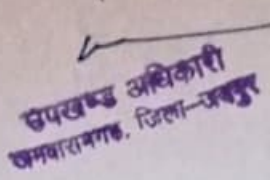 उपखण्ड अधिकारी
जमवारामगढ, जिला-जयपुर